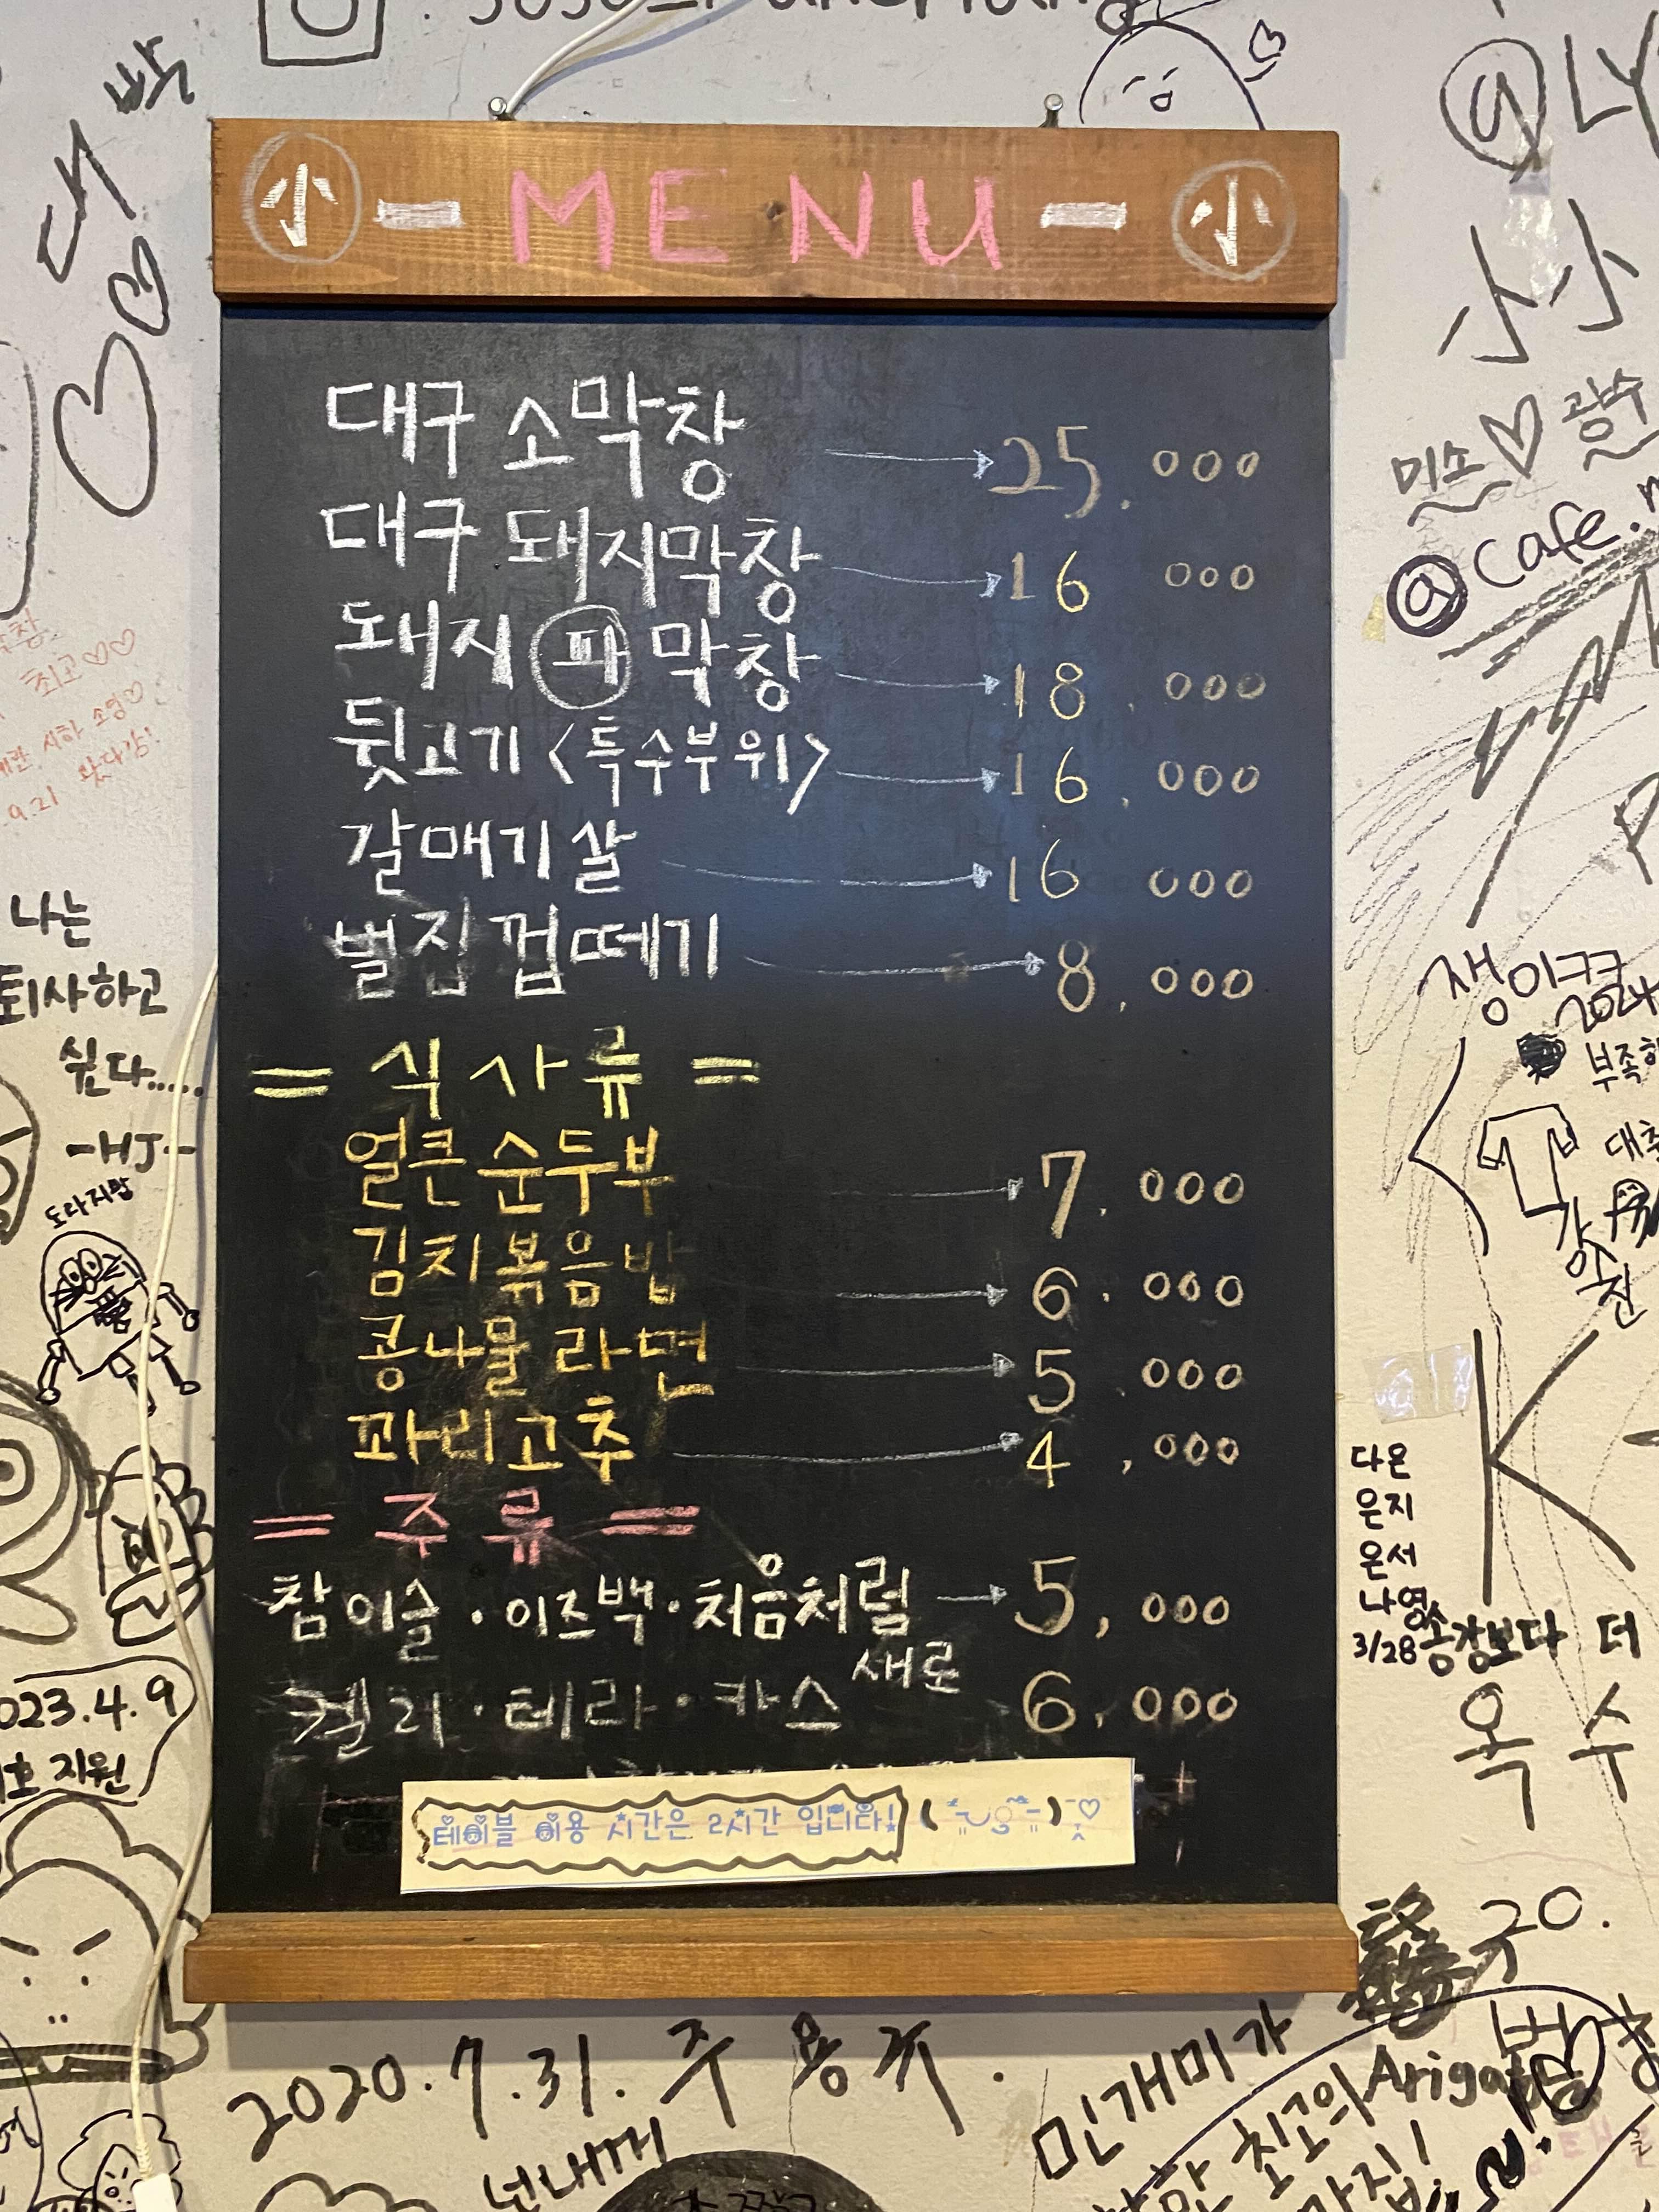 小 - MENU - 小
대구 소막창 → 25.000
대구 돼지막창 → 16 000
돼지 파 막창 → 18.000
뒷고기 <특수부위> → 16.000
갈매기살 → 16 000
벌집껍떼기 → 8.000
= 식사류 =
얼큰 순두부 → 7.000
김치볶음밥 → 6.000
콩나물 라면 → 5.000
꽈리고추 → 4,000
= 주류 =
참이슬·이즈백·처음처럼 → 5,000
새로
켈리·테라·카스 6,000
테이블 이용 시간은 2시간 입니다!
대박
小小
미소♡광수
@cafe.
나는
퇴사하고
싶다.....
-HJ-
최고♡♡
9.21 왔다감!
도라지맙
생이크크
2024
다은
은지
은서
나영
3/28
K
보다 더
옥수
2023.4.9
지원
20.
2020.7.31. 주용규.
민개미가
최고의
Arigat
넌내꺼